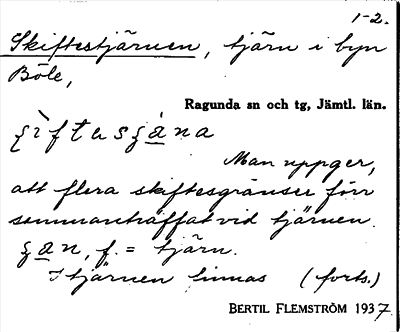 1-2.
Skiftestjärnen, tjärn i byn
Böle,
Ragunda sn och tg, Jämtl. län.
Man uppger,
att flera skiftesgränser förr
sammanträffat vid tjärnen.
f. = tjärn.
I tjärnen finnas (forts.)
BERTIL FLEMSTRÖM 1937.